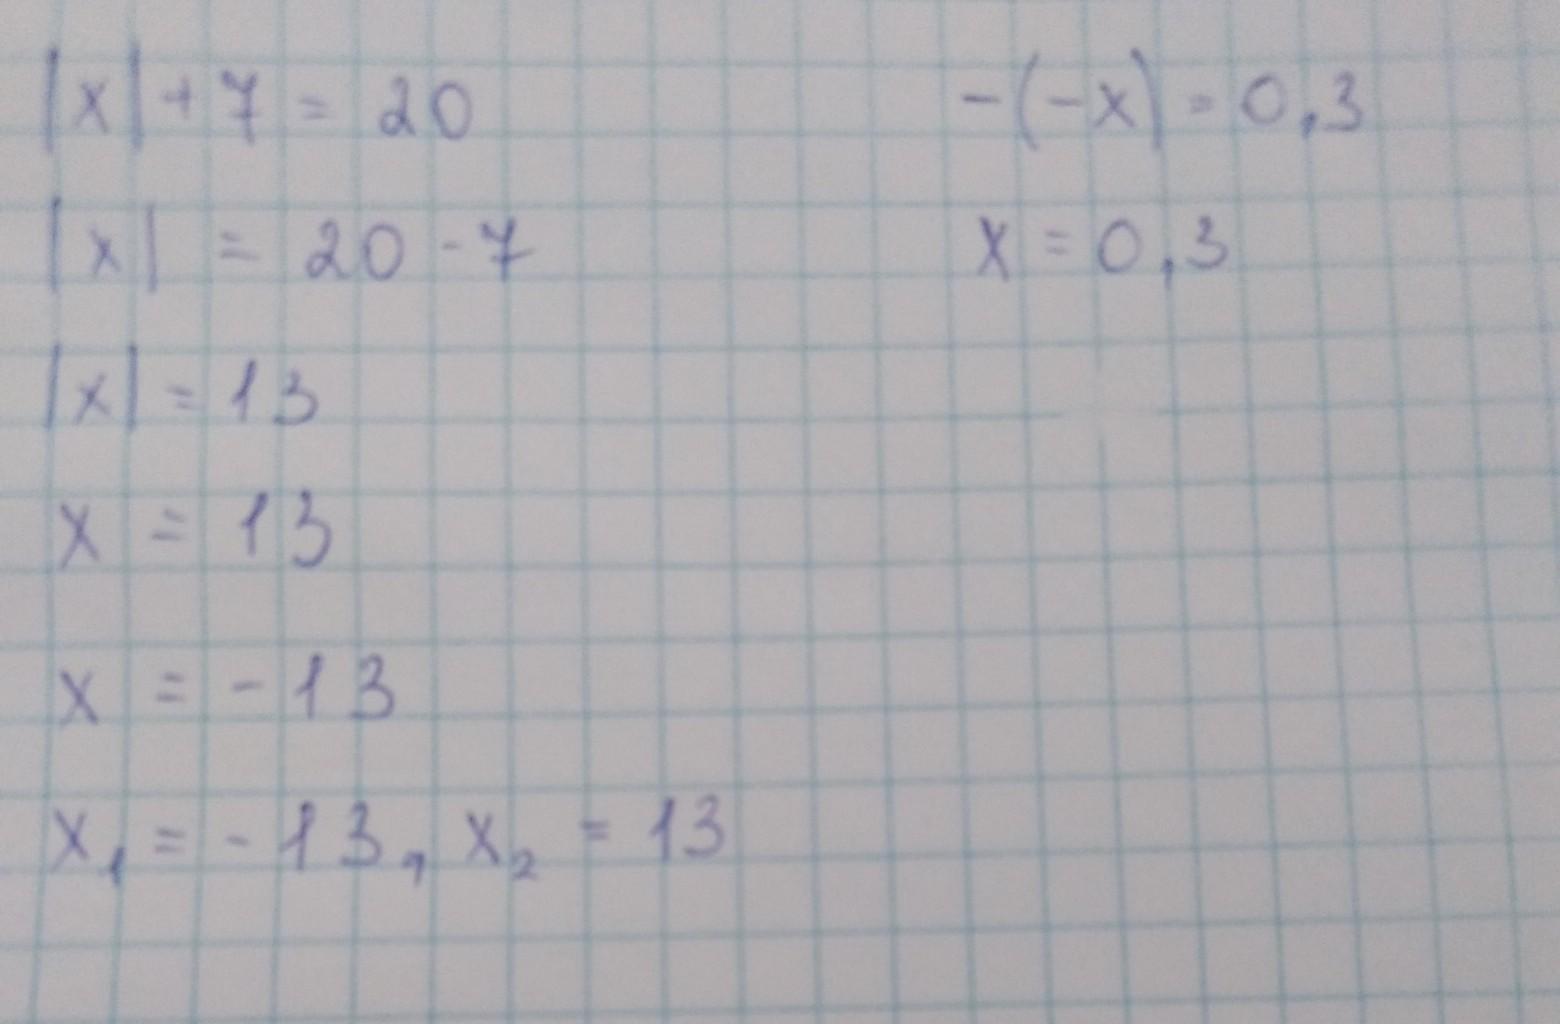 |x| + 7 = 20
|x| = 20 - 7
|x| = 13
x = 13
x = - 13
x₁ = - 13, x₂ = 13
-(-x) = 0,3
x = 0,3